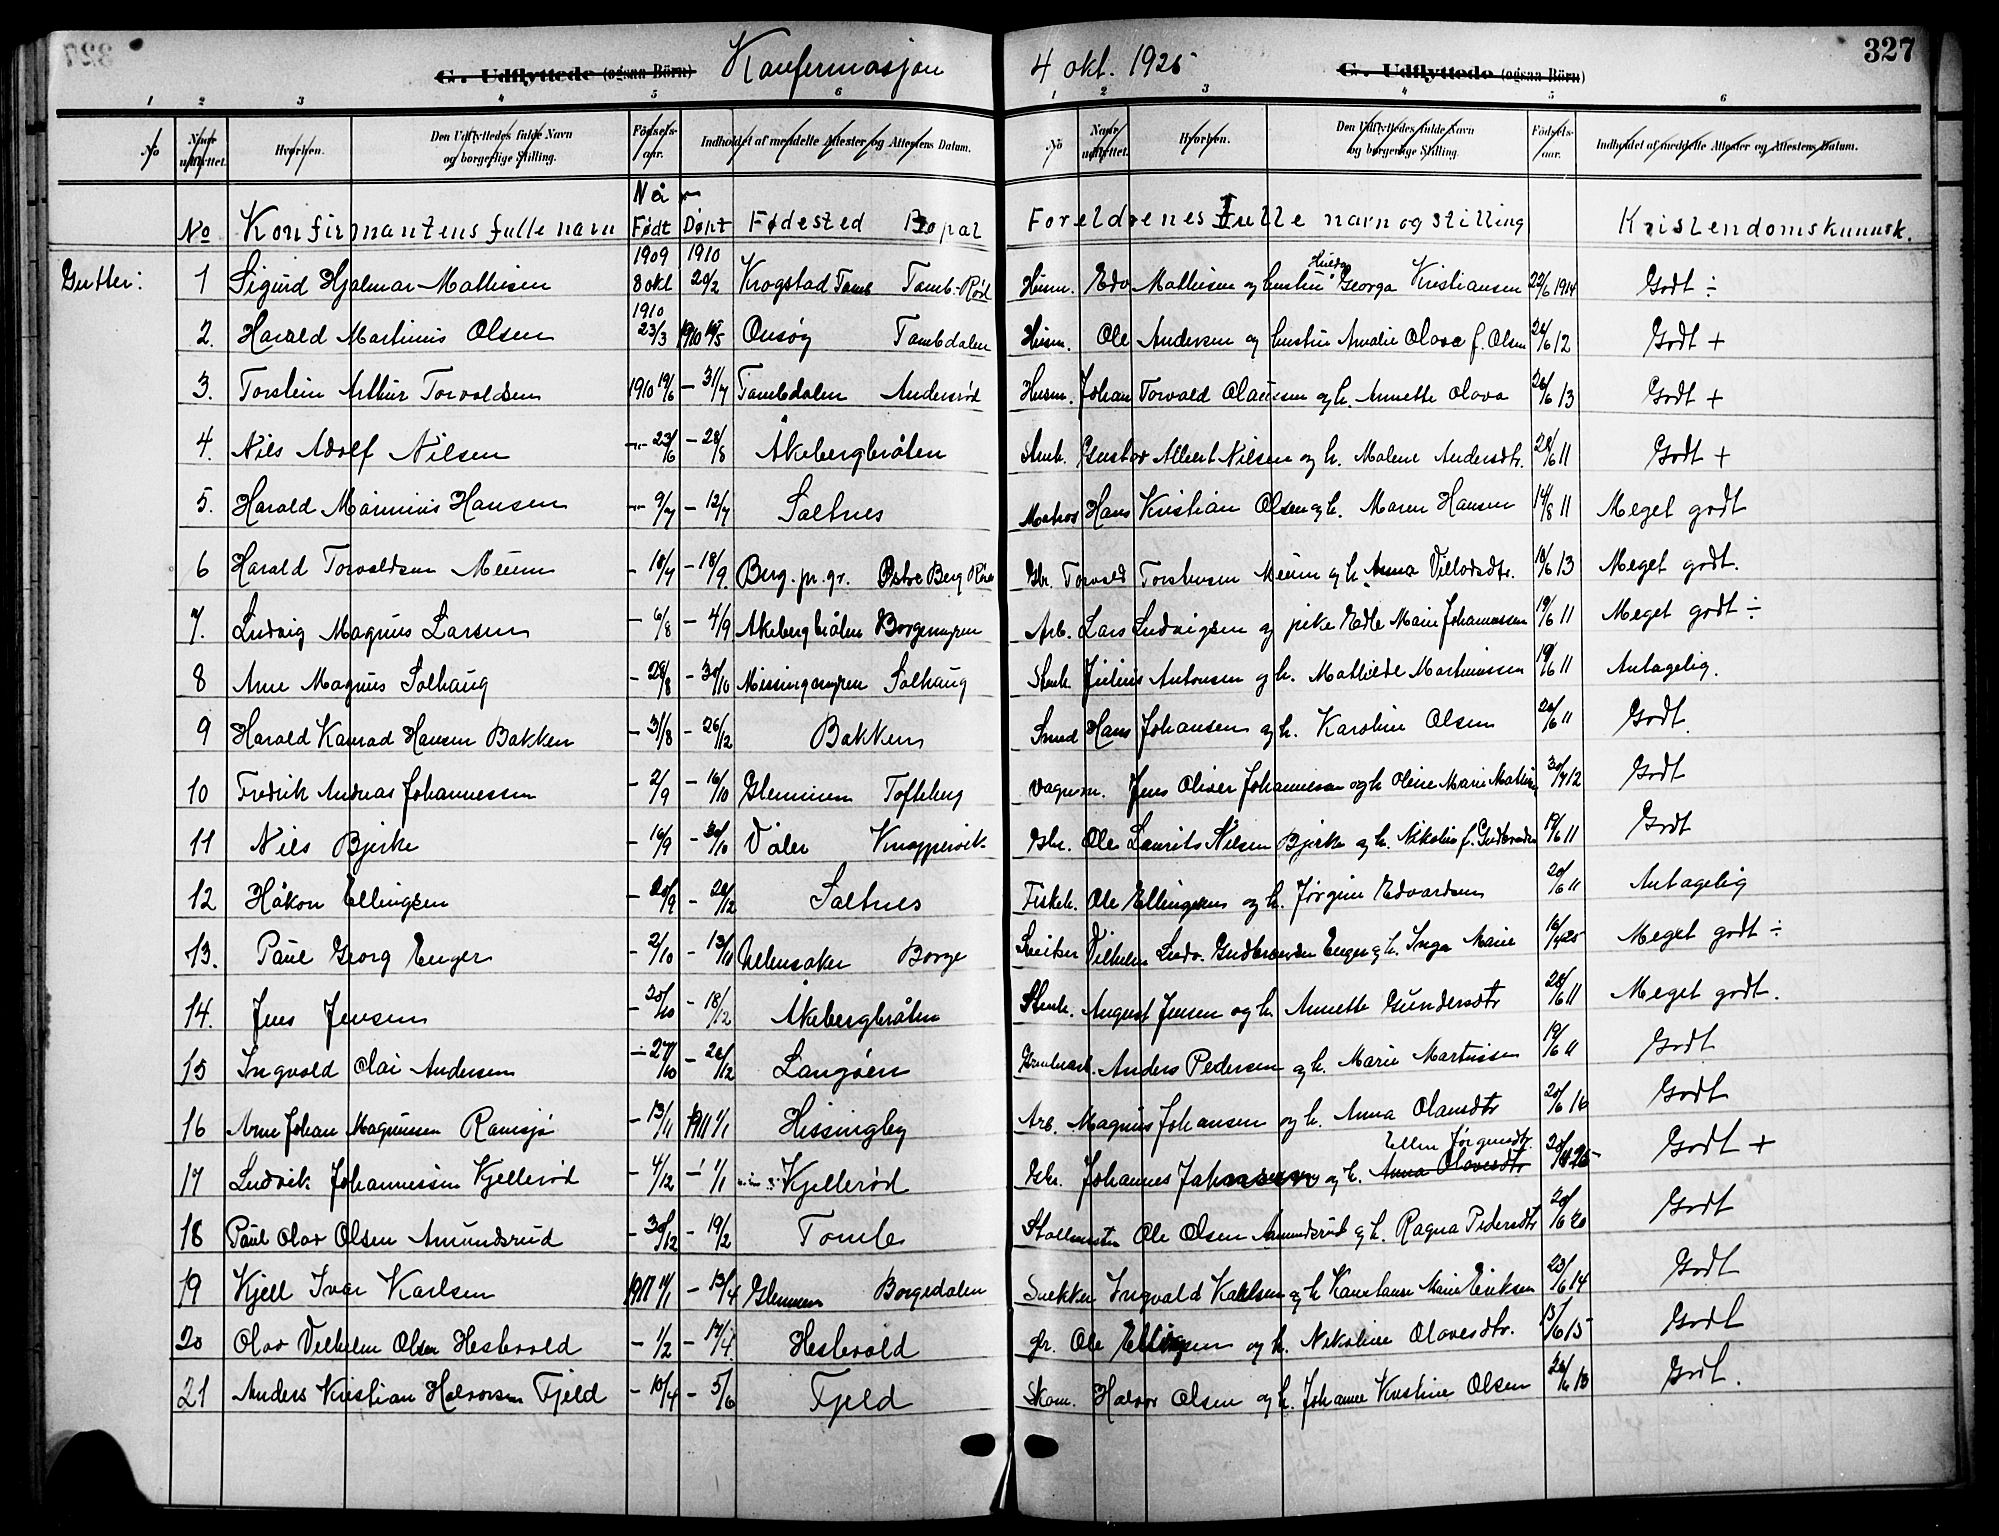 327
G. Udflyttede (ogsaa Börn) Konfermasjon 4 okt. 1925 G. Udflyttede (ogsaa Börn)
1 2 3 4 5 6 1 2 3 4 5 6
No Naar udflyttet. Hvorhen. Den Udflyttedes fulde Navn og borgerlige Stilling. Fødselsaar. Indholdet af meddelte Attester og Attestens Datum. No Naar udflyttet. Hvorhen. Den Udflyttedes fulde Navn og borgerlige Stilling. Födselsaar. Indholdet af meddelte Attester og Attestens Datum.
Når
No Konfirmantens fulle navn Født Døpt Fødested Bopæl Foreldrenes fulle navn og stilling Kristendomskunnsk.
Gutter: 1 Sigurd Hjalmar Mathisen 1909 8 okt 1910 20/2 Krogstad Tomb Tomb-Rød Husm. Edv Mathisen og hustru Hulda Georga Kristiansen 22/6 1914 Godt ÷
2. Harald Martinius Olsen 1910 23/3 1910 15/5 Onsøy Tombdalen Husm. Ole Andersen og hustru Amalie Olava f. Olsen 26/6 12 Godt +
3. Torstein Arthur Torvaldsen 1910 19/6 – 31/7 Tombdalen Andersrød Husm. Johan Torvald Olaussen og h. Annette Olava 26/6 13 Godt +
4. Nils Adolf Nilsen – 23/6 – 28/8 Åkebergbråten Stenh. Gustav Albert Nilsen og h. Malene Andersdtr. 28/6 11 Godt +
5. Harald Marinius Hansen – 9/7 – 12/7 Saltnes Matros Hans Kristian Olsen og h. Maren Hansen 14/8 11 Meget godt
6 Harald Torvaldsen Meum – 18/7 – 18/9 Berg pr. gr. Østre Berg Gbr. Torvald Torstensen Meum og h. Anna 18/6 13 Meget godt.
7. Ludvig Magnus Larsen – 6/8 – 4/9 Åkebergbråten Borgemyren Arb. Lars Ludvigsen og pike Edle Marie Johannessen 19/6 11 Meget godt ÷
8 Arne Magnus Solhaug – 28/8 – 30/10 Missingmyren Solhaug Stenh. Julius Antonsen og h. Mathilde Martinussen 19/6 11 Antagelig.
9 Harald Konrad Hansen Bakken – 31/8 – 26/12 Bakken Smed Hans Johansen og h. Karoline Olsen 20/6 11 Godt.
10 Fredrik Andreas Johannessen – 2/9 – 16/10 Glemmen Tofteberg Vognm. Jens Oliver Johannessen og h Oline Marie 30/7 12 Godt
11 Nils Bjerke – 16/9 – 30/10 Våler Knappervik Gbr. Ole Laurits Nilsen Bjerke og h. Nikoline f. 19/6 11 Godt
12 Håkon Ellingsen – 20/9 – 26/12 Saltnes Fisker. Ole Ellingsen og h. Jørgine Edvardsen 20/6 11 Antagelig
13. Paul Georg Enger – 2/10 – 13/11 Ullensaker Borge Sveitser Vilhelm Ludv. Gudbrandsen Enger og h. Inga Marie 16/4 25 Meget godt ÷
14. Jens Jensen – 20/10 – 18/12 Åkebergbråten Stenh. August Jensen og h. Annette Gundersdtr 28/6 11 Meget godt.
15 Ingvald Olai Andersen – 27/10 – 26/12 Langøen Anders Pedersen og h. Marie Martinsen 19/6 11 Godt
16 Arne Johan Magnussen Ramsjø – 13/11 1911 1/1 Hissingby Arb. Magnus Johansen og h. Anna Olausdtr 20/6 16 Godt
17 Ludvik Johannessen Kjellerød – 4/12 – 1/1 Kjellerød Gbr. Johannes Johansen og h. Anna Olavesdtr Ellen Jørgensdtr. Godt +
18 Paul Olav Olsen Amundsrud – 30/12 – 19/2 Tomb Stallmester Ole Olsen Amundsrud og h. Ragna Pedersdtr 20/6 20 Godt
19 Kjell Ivar Karlsen 1911 14/1 – 13/4 Glemmen Borgedalen Snekker Ingvald Karlsen og h Konstanse Marie Eriksen 23/6 14 Godt
20 Olav Vilhelm Olsen Hestevold – 1/2 – 17/4 Hestevold gr. Ole Ellingsen og h. Nikoline Olavesdtr. 15/6 15 Godt
21 Anders Kristian Halvorsen Fjeld – 10/4 – 5/6 Fjeld Skom. Halvor Olsen og h. Johanne Kristine Olsen 20/6 18 Godt.